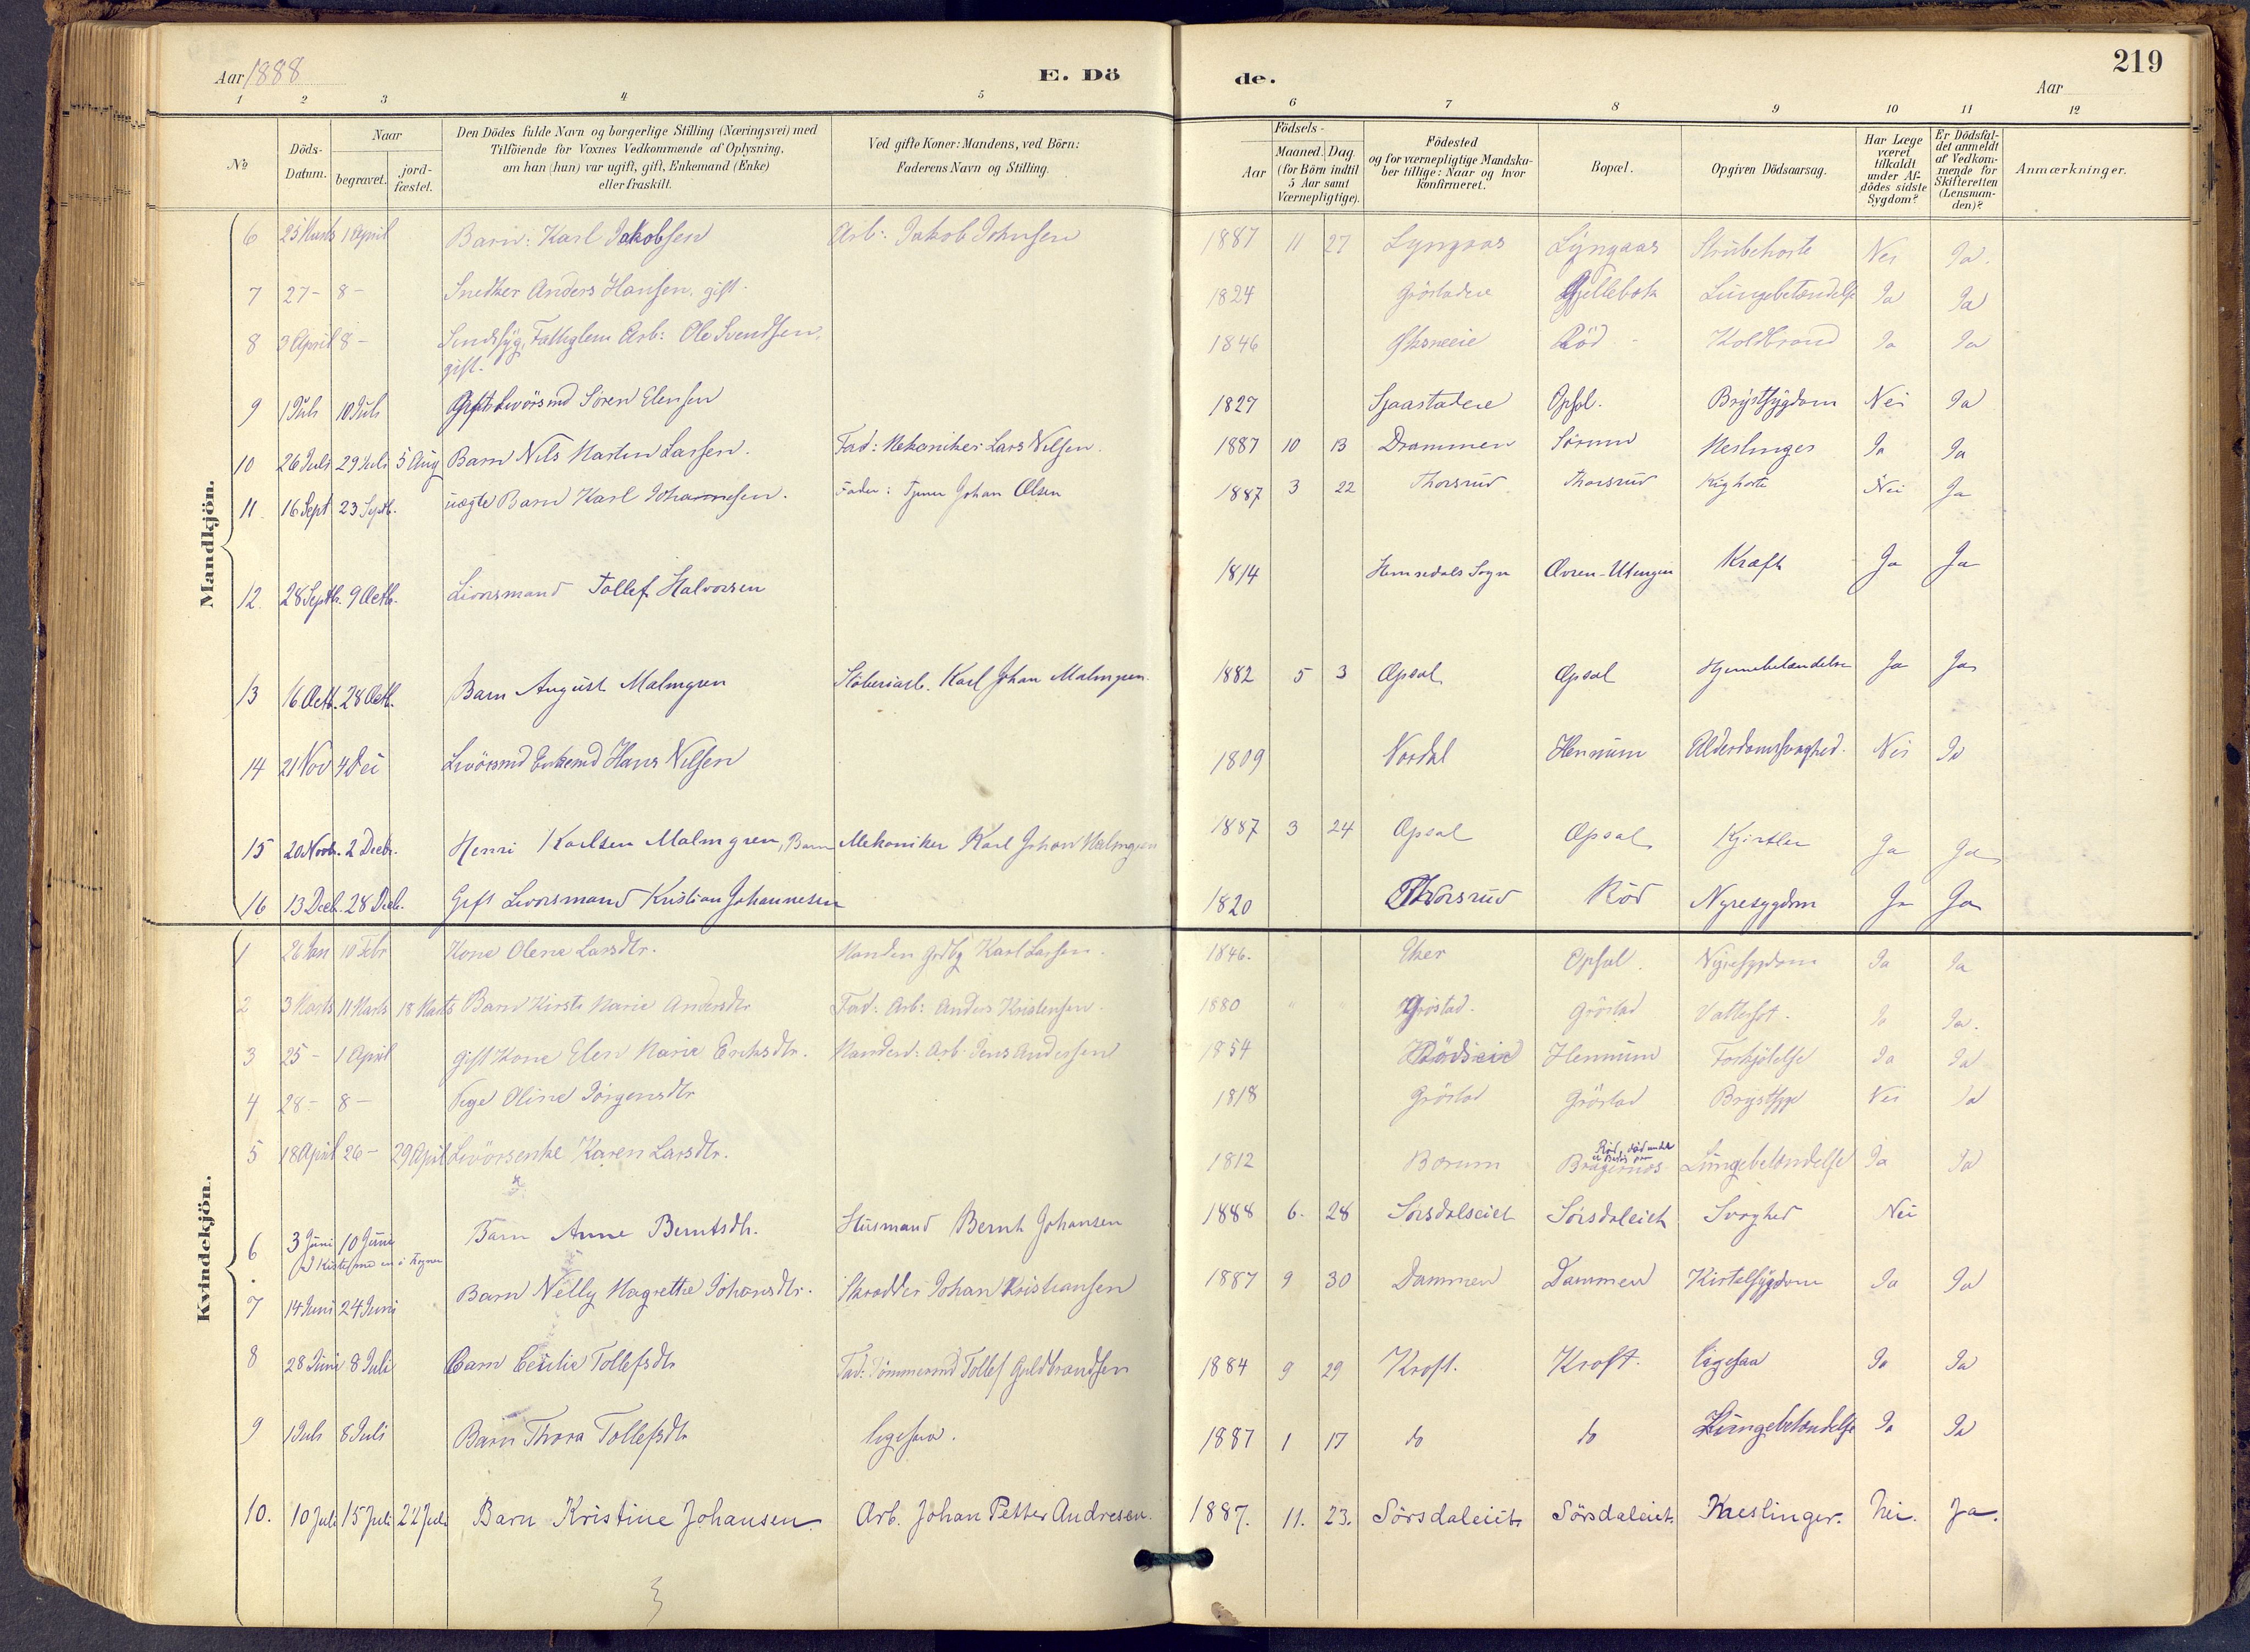 Aar 1888
E. Dö
de.
219
Aar
1 2 3 4 5 6 7 8 9 10 11 12
№
Döds-Datum.
Naar
begravet.
jord-fæstet.
Den Dödes fulde Navn og borgerlige Stilling (Næringsvei) med
Tilföiende for Voxnes Vedkommende af Oplysning,
om han (hun) var ugift, gift, Enkemand (Enke)
eller fraskilt.
Ved gifte Koner: Mandens, ved Börn:
Faderens Navn og Stilling.
Födsels-
Aar
Maaned. Dag.
(for Börn indtil
5 Aar samt
Værnepligtige).
Födested
og for værnepligtige Mandska-
ber tillige: Naar og hvor
konfirmeret.
Bopæl.
Opgiven Dödsaarsag.
Har Læge
været
tilkaldt
under Af-
dödes sidste
Sygdom?
Er Dödsfal-
det anmeldt
af Vedkom-
mende for
Skifteretten
(Lensman-
den)?
Anmærkninger.
Mandkjön.
6 25 Marts 1 April Barn: Karl Jakobsen Arb: Jakob Johnsen 1887 11 27 Lyngaas Lyngaas Strubehoste Nei Ja.
7 27 - 8 - Snedker Anders Hansen. gift. 1824 Gjellebek Lungebetændelse Ja Ja
8 3 April 8 - Sindssyg, Fattiglem Arb: Ole Svendsen, 1846 Röd Koldbrand Ja Ja
gift.
9 1 Juli 10 Juli Gift Livörsmd Sören Elensen 1827 Opsal. Brystsygdom Nei Ja
10 26 Juli 29 Juli 5 Aug Barn Nils Martin Larsen. Fad: Mekaniker Lars Nilsen. 1887 10 13 Drammen Meslinger Ja Ja
11. 16 Sept 23 Septb. uægte Barn Karl Johannesen. Fader: Tjener Johan Olsen 1887 3 22 Thorsrud Thorsrud Kighoste Nei Ja
12. 28 Septb. 9 Octb. Livorsmand Tollef Halvorsen 1814 Hemsedals Sogn Kræft Ja Ja
13 16 Octb. 28 Octb. Barn August Malmgren Stöberiarb. Karl Johan Malmgren. 1882 5 3 Opsal Opsal Hjernebetændelse Ja Ja
14 21 Nov 4 Dec Livörsmd Enkemd Hans Nilsen 1809 Nordal Hennum Alderdomssvaghed. Nei Ja
15 20 Novb. 2 Decb. Henri Karlsen Malmgren, Barn Mekaniker Karl Johan Malmgren 1887 3 24 Opsal Opsal Kjirtler Ja Ja
16 13 Decb. 28 Decb. Gift Livorsmand Kristian Johannesen 1820 Thorsrud Röd Nyresygdom Ja Ja
Kvindekjön.
1 26 Jan 10 Febr Kone Olene Larsdtr. Manden Karl Larsen. 1846. Eker Opsal. Nyresygdom Ja Ja
2 3 Marts 11 Marts 18 Marts Barn Kirsti Marie Andersdtr Fad: Arb: Anders Kristensen. 1880 " " Gröstad. Gröstad Vattersot. Ja Ja.
3 25 - 1 April Gift Kone Elen Marie Eriksdtr. Manden: Arb: Jens Andersen 1854 Hennum Forkjölelse Ja Ja
4 28 - 8 - Pige Oline Jörgensdtr 1818 Gröstad Gröstad Brystsyge Nei Ja
5 18 April 26 - 29 April Livörsenke Karen Larsdtr. 1812 Bærum Röd, död under et Besög paa Bragernes Lungebetændelse Ja Ja
6 3 Juni 10 Juni Barn Anne Berntsdtr. Husmand Bernt Johansen 1888 6. 28 Sörsdalseiet Sörsdaleiet Svaghed Nei
7 14 Juni 24 Juni Barn Nelly Magrethe Johansdtr. Skrædder Johan Kristiansen 1887 9 30 Dammen Dammen Kirtelsygdom Ja Ja
8 28 Juni 8 Juli Barn Cecilie Tollefsdtr Fad: Tömmermd Tollef Guldbrandsen 1884 9 29 Kroft. Kroft. ligesaa Ja Ja
9 1 Juli 8 Juli Barn Thora Tollefsdtr ligesaa. 1887 1 17 do do Lungebetændelse Ja Ja
10. 10 Juli 15 Juli 22 Juli Barn Kristine Johansen Arb. Johan Petter Andresen. 1887. 11. 23. Sörsdaleiet Sörsdaleiet. Meslinger. Nei. Ja.